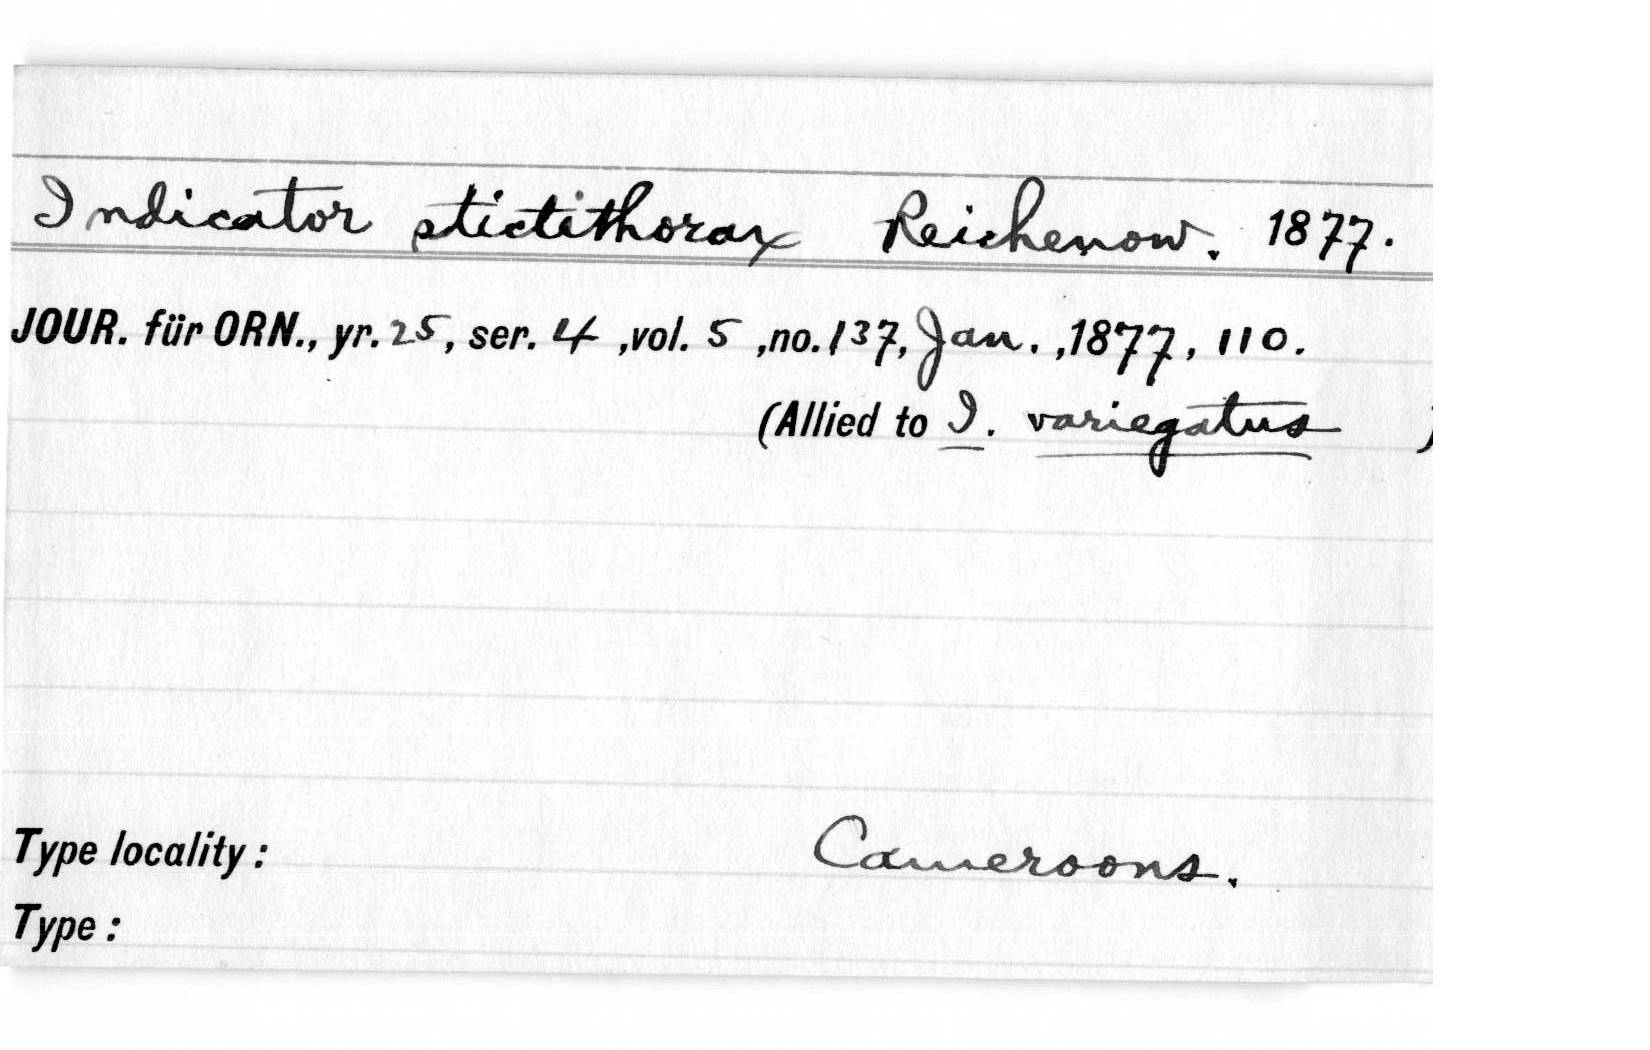 Indicator stictithorax Reichenow. 1877.
JOUR. für ORN., yr. 25, ser. 4 ,vol. 5 ,no. 137, Jan. ,1877, 110.
(Allied to I. variegatus )
Type locality : Cameroons.
Type :